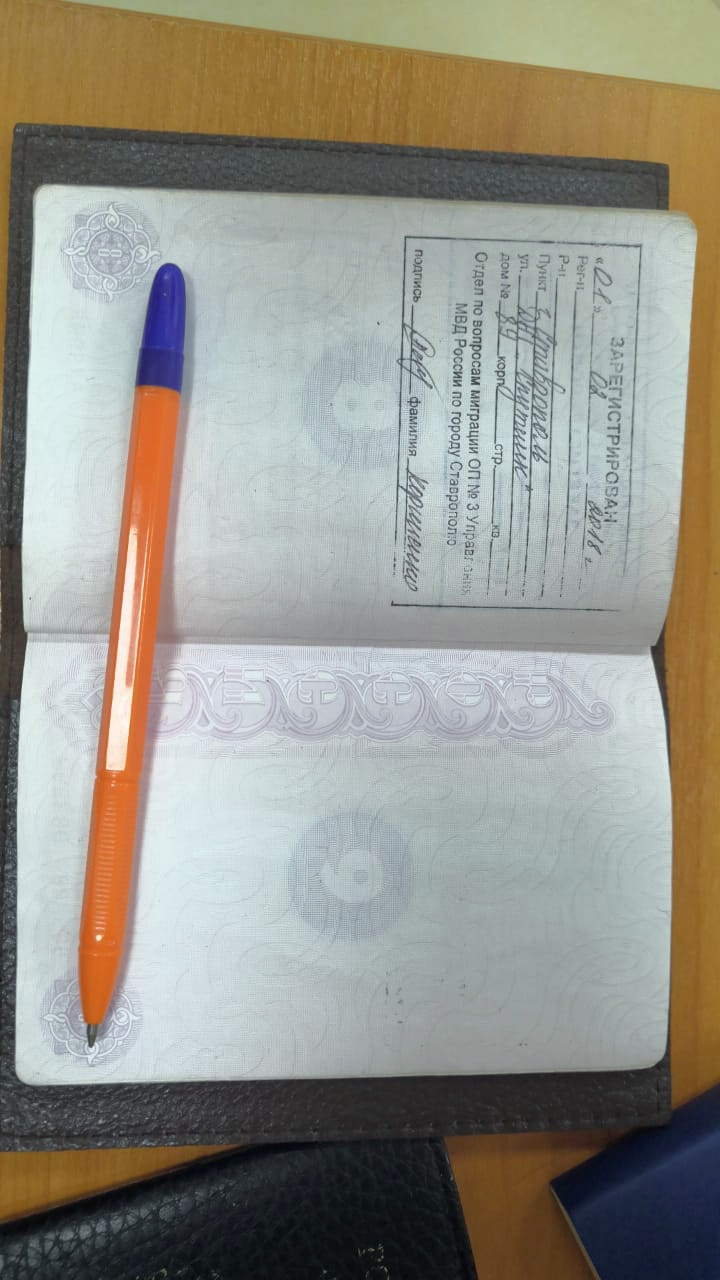 ЗАРЕГИСТРИРОВАН
«01» 02 2018 г.
Рег-н
Р-н
Пункт г. Ставрополь
ул. ДНТ "Спутник"
дом № 89 корп стр. кв.
Отдел по вопросам миграции ОП № 3 Управления
МВД России по городу Ставрополю
подпись фамилия
8
8
9